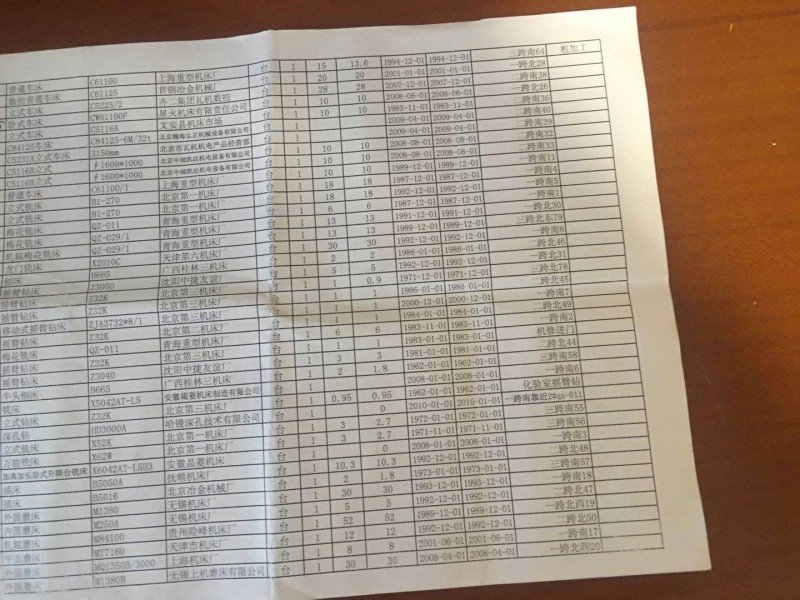 普通车床 C61100 上海重型机床厂 台 1 15 13.6 1994-12-01 1994-12-01 三跨南64 粗加工
数控普通车床 C61125 首钢冶金机械厂 台 1 20 20 2001-01-01 2001-01-01 一跨北28
立式车床 C5225/2 齐二集团瓦机数控 台 1 28 28 2007-12-01 2007-12-01 二跨南38
卧式车床 CW61100F 星火机床有限责任公司 台 1 10 10 2008-06-01 2008-06-01 一跨北26
立式车床 C5116A 文安县机床市场 台 1 10 10 1983-11-01 1983-11-01 二跨南36
C84125车床 C84125-6M/32t 北京瀚海弘正机械设备有限公司 台 1 2009-04-01 2009-04-01 二跨南40
C5231A立式车床 3150mm 北京市瓦机机电产品经营部 台 1 2009-04-01 2009-04-01 二跨南39
C5116B立式 ∮1600*1000 北京中瑞凯达机电设备有限公司 台 1 10 10 2008-08-01 2008-08-01 二跨南32
C5116B立式 ∮1600*1000 北京中瑞凯达机电设备有限公司 台 1 10 10 2008-08-01 2008-08-01 二跨南33
普通车床 C61100/1 上海重型机床厂 台 1 18 18 1989-12-01 1989-12-01 一跨南11
立式铣床 B1-270 北京第一机床厂 台 1 18 18 1987-12-01 1987-12-01 一跨南4
立式铣床 B1-270 北京第一机床厂 台 1 6 6 1992-12-01 1992-12-01 一跨南5
梅花铣床 QZ-011 青海重型机床厂 台 1 13 13 1987-12-01 1987-12-01 一跨南1
梅花铣床 QZ-029/1 青海重型机床厂 台 1 13 13 1991-12-01 1991-12-01 一跨北30
轧辊梅花铣床 QZ-029/1 青海重型机床厂 台 1 30 30 1992-12-01 1992-12-01 三跨北东79
龙门铣床 X2010C 天津第六机床厂 台 1 2 2 1986-01-01 1986-01-01 一跨南8
刨床 B665 广西桂林三机床 台 1 5 5 1992-12-01 1992-12-01 二跨北46
摇臂钻床 Z3050 沈阳中捷友谊厂 台 1 1 0.9 1986-01-01 1986-01-01 一跨北31
摇臂钻床 Z32K 北京第三机床厂 台 1 1 1 1971-12-01 1971-12-01 三跨北78
摇臂钻床 Z32K 北京第三机床厂 台 1 1 1 1986-01-01 1986-01-01 二跨北45
移动式摇臂钻床 ZJA3732*8/1 北京第三机床厂 台 1 1 1 2000-12-01 2000-12-01 一跨南7
摇臂钻床 Z32K 北京第二机床厂 台 1 1 1 1984-01-01 1984-01-01 二跨北49
梅花铣床 QZ-011 青海重型机床厂 台 1 6 6 1984-01-01 1984-01-01 一跨南2
摇臂钻床 Z32K 北京第三机床厂 台 1 1 1 1983-11-01 1983-11-01 机修进门
摇臂钻床 Z3040 沈阳中捷友谊厂 台 1 3 3 1983-11-01 1983-11-01 二跨北44
牛头刨床 B665 广西桂林三机床 台 1 2 1.8 1981-01-01 1981-01-01 三跨南58
铣床 X5042AT-L5 安徽褐菱机床制造有限公司 台 1 0 2008-01-01 2008-01-01 一跨南6
立式钻床 Z32K 北京第三机床厂 台 1 0.95 0.95 1962-01-01 1962-01-01 化验室摇臂钻
深孔钻 HD3000A 哈镗深孔技术有限公司 台 1 0 2010-01-01 2010-01-01 一跨南靠近2#qz-011
立式铣床 X52K 北京第一机床厂 台 1 3 2.7 1962-01-01 1962-01-01 三跨南55
万能铣床 X62W 北京第一机床厂 台 1 3 2.7 1971-01-01 1971-01-01 三跨南56
加高加长卧式升降台铣床 X6042AT-L5B3 安徽晶菱机床 台 1 0 2008-01-01 2008-01-01 一跨南3
插床 B5050A 抚顺机床厂 台 1 10.3 10.3 1992-12-01 1992-12-01 二跨北48
插床 B5016 北京冶金机械厂 台 1 2 1.8 1973-01-01 1973-01-01 三跨南57
外圆磨床 M1380 无锡机床厂 台 1 30 30 1993-12-01 1993-12-01 一跨南18
内圆磨床 M250A 无锡机床厂 台 1 5 5 1992-12-01 1992-12-01 二跨北47
轧辊磨床 M84100 贵州险峰机床厂 台 1 52 52 1992-12-01 1992-12-01 一跨北西19
平面磨床 MT7160 天津市机床厂 台 1 12 12 1992-12-01 1992-12-01 二跨北50
外圆磨床 MQ1350B/3000 上海机床厂 台 1 8 8 2001-06-01 2001-06-01 一跨南17
外圆磨床 M1380B 无锡上机磨床有限公司 台 1 30 30 2008-04-01 2008-04-01 一跨北西20